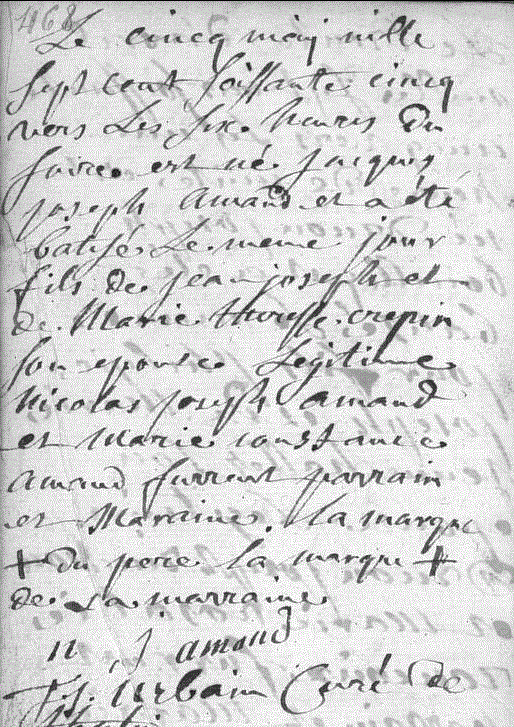 468
Le cincq maij mille
sept cent soissante cincq
vers Les six heures du
soire est né jacques
joseph Amand et a été
batisé Le meme jour
fils de jean joseph et
de Marie theresse crepin
son epouse Legitime
Nicolas joseph amand
et Marie constance
Amand furrent parrain
et Maraine. la marque
+ du pere la marque +
de La marraine
n j amand
Urbain Curé de